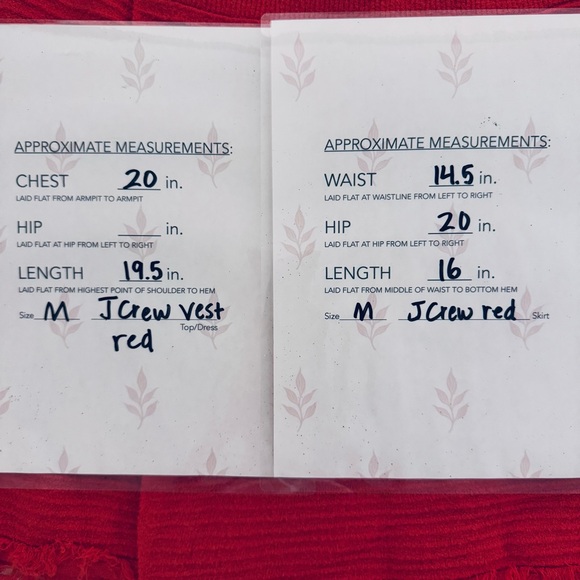 APPROXIMATE MEASUREMENTS:
CHEST 20 in.
LAID FLAT FROM ARMPIT TO ARMPIT
HIP ____ in.
LAID FLAT AT HIP FROM LEFT TO RIGHT
LENGTH 19.5 in.
LAID FLAT FROM HIGHEST POINT OF SHOULDER TO HEM
Size M JCrew Vest
Top/Dress
red
APPROXIMATE MEASUREMENTS:
WAIST 14.5 in.
LAID FLAT AT WAISTLINE FROM LEFT TO RIGHT
HIP 20 in.
LAID FLAT AT HIP FROM LEFT TO RIGHT
LENGTH 16 in.
LAID FLAT FROM MIDDLE OF WAIST TO BOTTOM HEM
Size M JCrew red Skirt